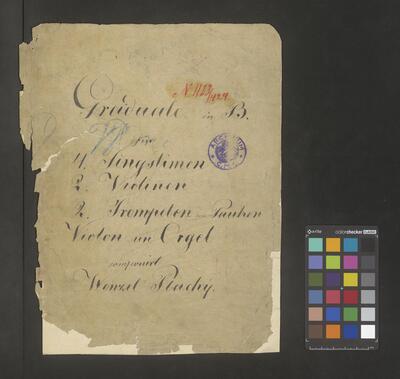 N 1123/1924
Graduale in B.
für
4 Singstimen
2. Violinen
2. Trompeten Pauken
Violon un Orgel
componirt
Wenzel Plachy.
x-rite colorchecker CLASSIC